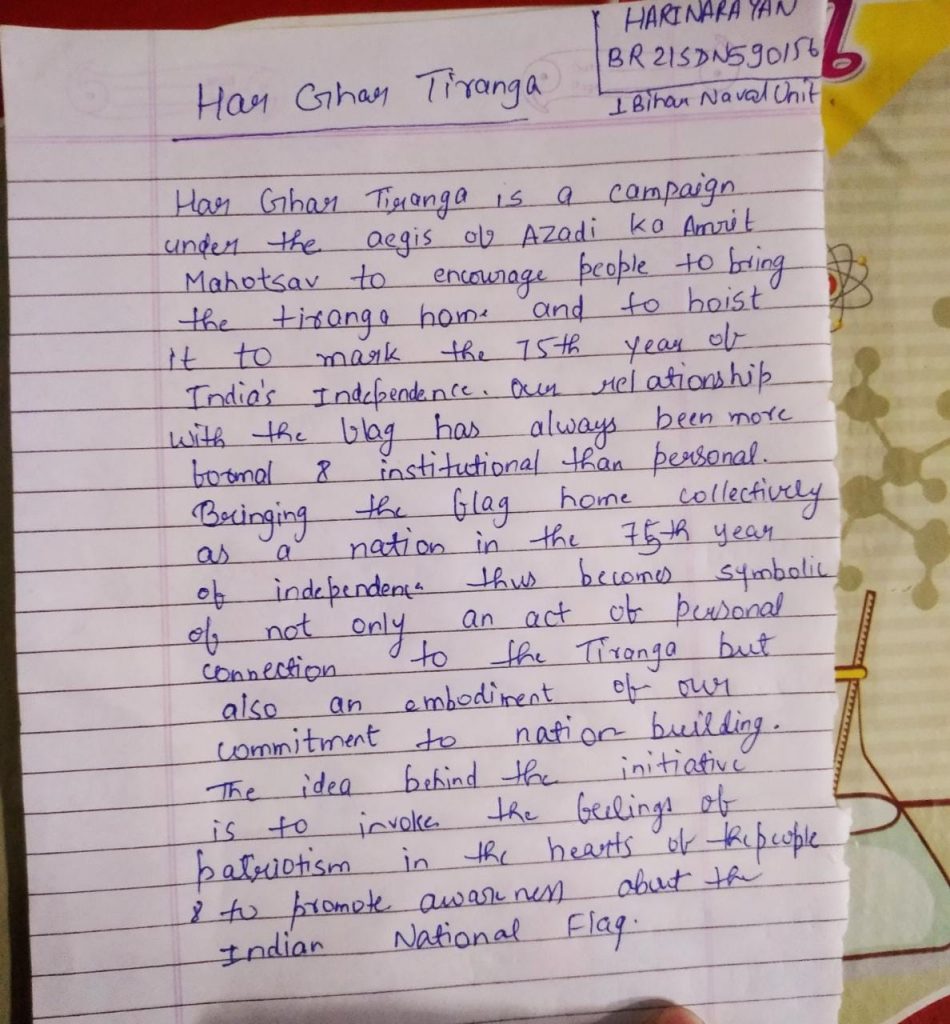 HARINARAYAN
BR21SDN590156
1 Bihar Naval Unit
Har Ghar Tiranga
Har Ghar Tiranga is a campaign
under the aegis of Azadi ka Amrit
Mahotsav to encourage people to bring
the tiranga home and to hoist
it to mark the 75th year of
India's Independence. Our relationship
with the flag has always been more
formal & institutional than personal.
Bringing the flag home collectively
as a nation in the 75th year
of independence thus becomes symbolic
of not only an act of personal
connection to the Tiranga but
also an embodiment of our
commitment to nation building.
The idea behind the initiative
is to invoke the feelings of
patriotism in the hearts of the people
& to promote awareness about the
Indian National Flag.